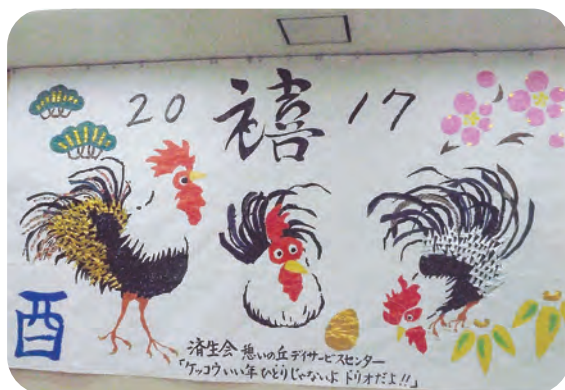 2017
禧
酉
済生会 憩いの丘デイサービスセンター
「ケッコウいい年ひとりじゃないよ トリオだよ!!」